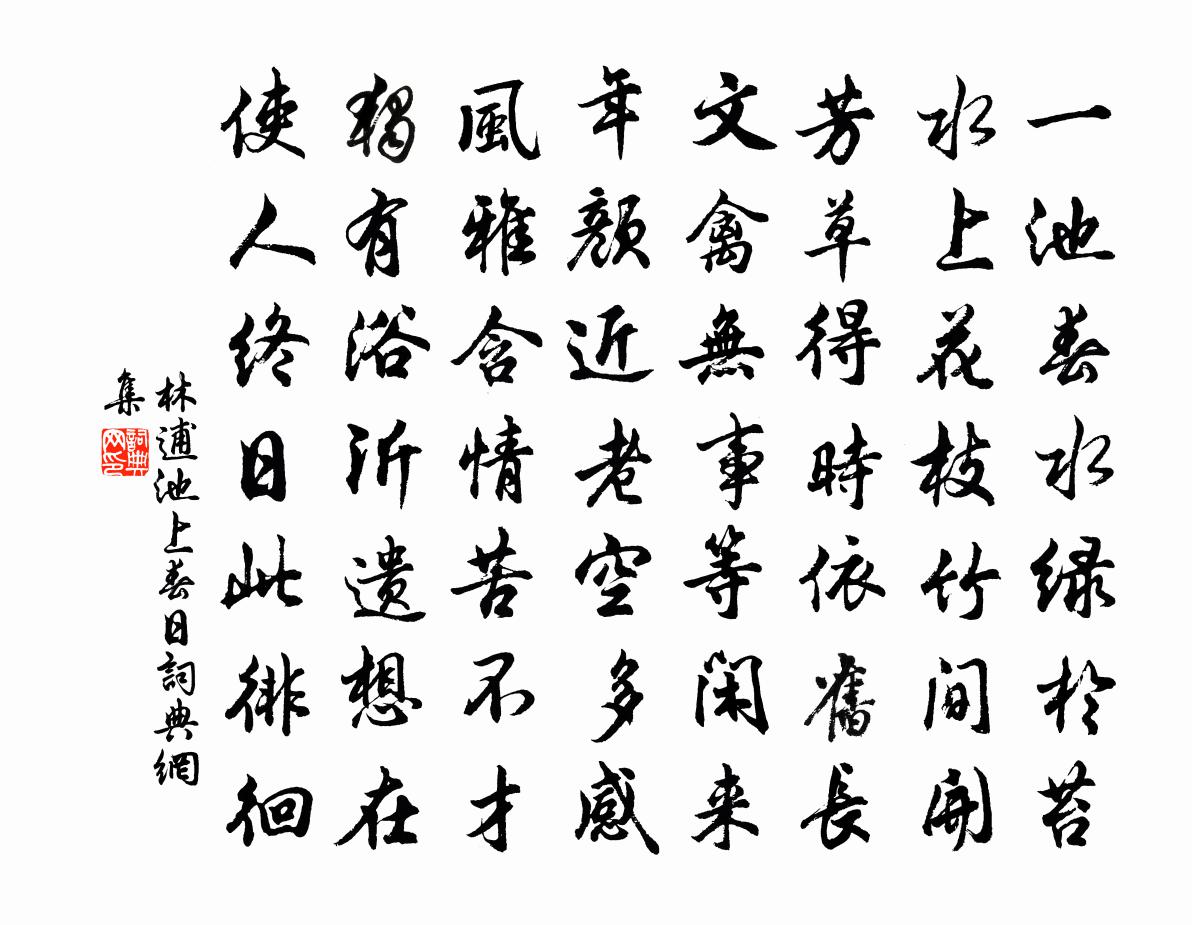 一池春水绿於苔
水上花枝竹间開
芳草得時依舊長
文禽無事等闲来
年颜近老空多感
風雅含情苦不才
獨有浴沂遗想在
使人终日此徘徊
林逋池上春日詞典網
集
詞典
网印